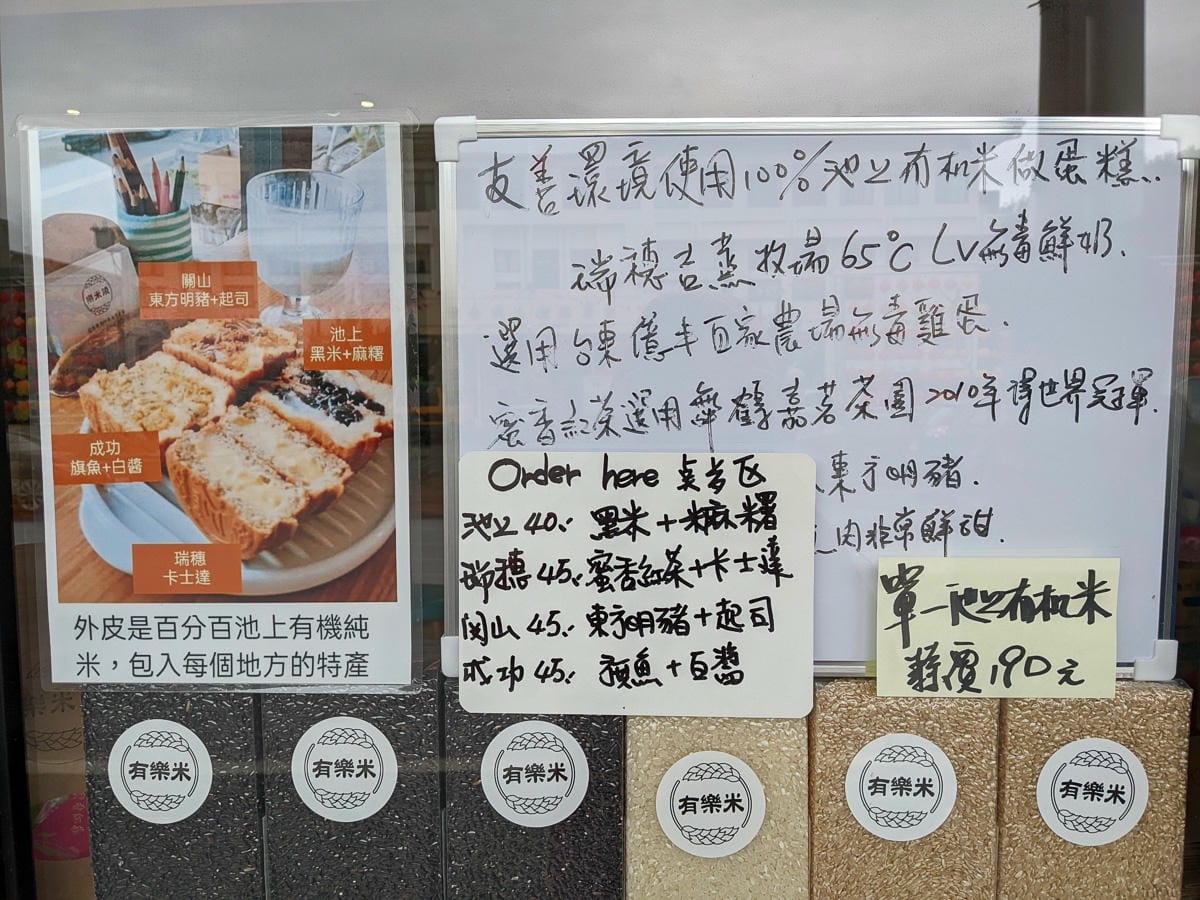 關山
東方明豬+起司
池上
黑米+麻糬
成功
旗魚+白醬
瑞穗
卡士達
外皮是百分百池上有機純
米，包入每個地方的特產
友善環境使用100%池上有机米做蛋糕..
瑞穗吉蒸牧場65°C LV無毒鮮奶.
選用台東億丰百家農場無毒雞蛋.
蜜香紅茶選用舞鶴嘉茗茶園2010年得世界冠軍.
東方明豬.
肉非常鮮甜.
Order here 点歺区
池上40.: 黑米+麻糬
瑞穗45.: 蜜香紅茶+卡士達
関山45.: 東方明豬+起司
成功45.: 旗魚+白醬
單一池上有机米
特價190元
有樂米
有樂米
有樂米
有樂米
有樂米
有樂米